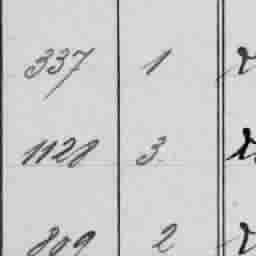 337 1
1128 3
809 2